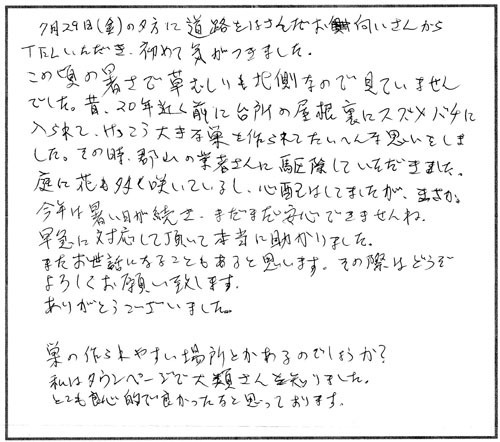 7月29日(金)の夕方に道路をはさんだお向いさんから
TELいただき、初めて気がつきました。
この頃の暑さで草むしりも北側なので見ていません
でした。昔、20年近く前に台所の屋根裏にスズメバチに
入られて、けっこう大きな巣を作られてたいへんな思いをしま
した。その時、郡山の業者さんに駆除していただきました。
庭に花も多く咲いているし、心配はしてましたが、まさか。
今年は暑い日が続き、まだまだ安心できませんね。
早急に対応して頂いて本当に助かりました。
またお世話になることもあると思います。その際はどうぞ
よろしくお願い致します。
ありがとうございました。
巣の作られやすい場所とかあるのでしょうか?
私はタウンページで大類さんを知りました。
とても良心的で良かったなと思っております。